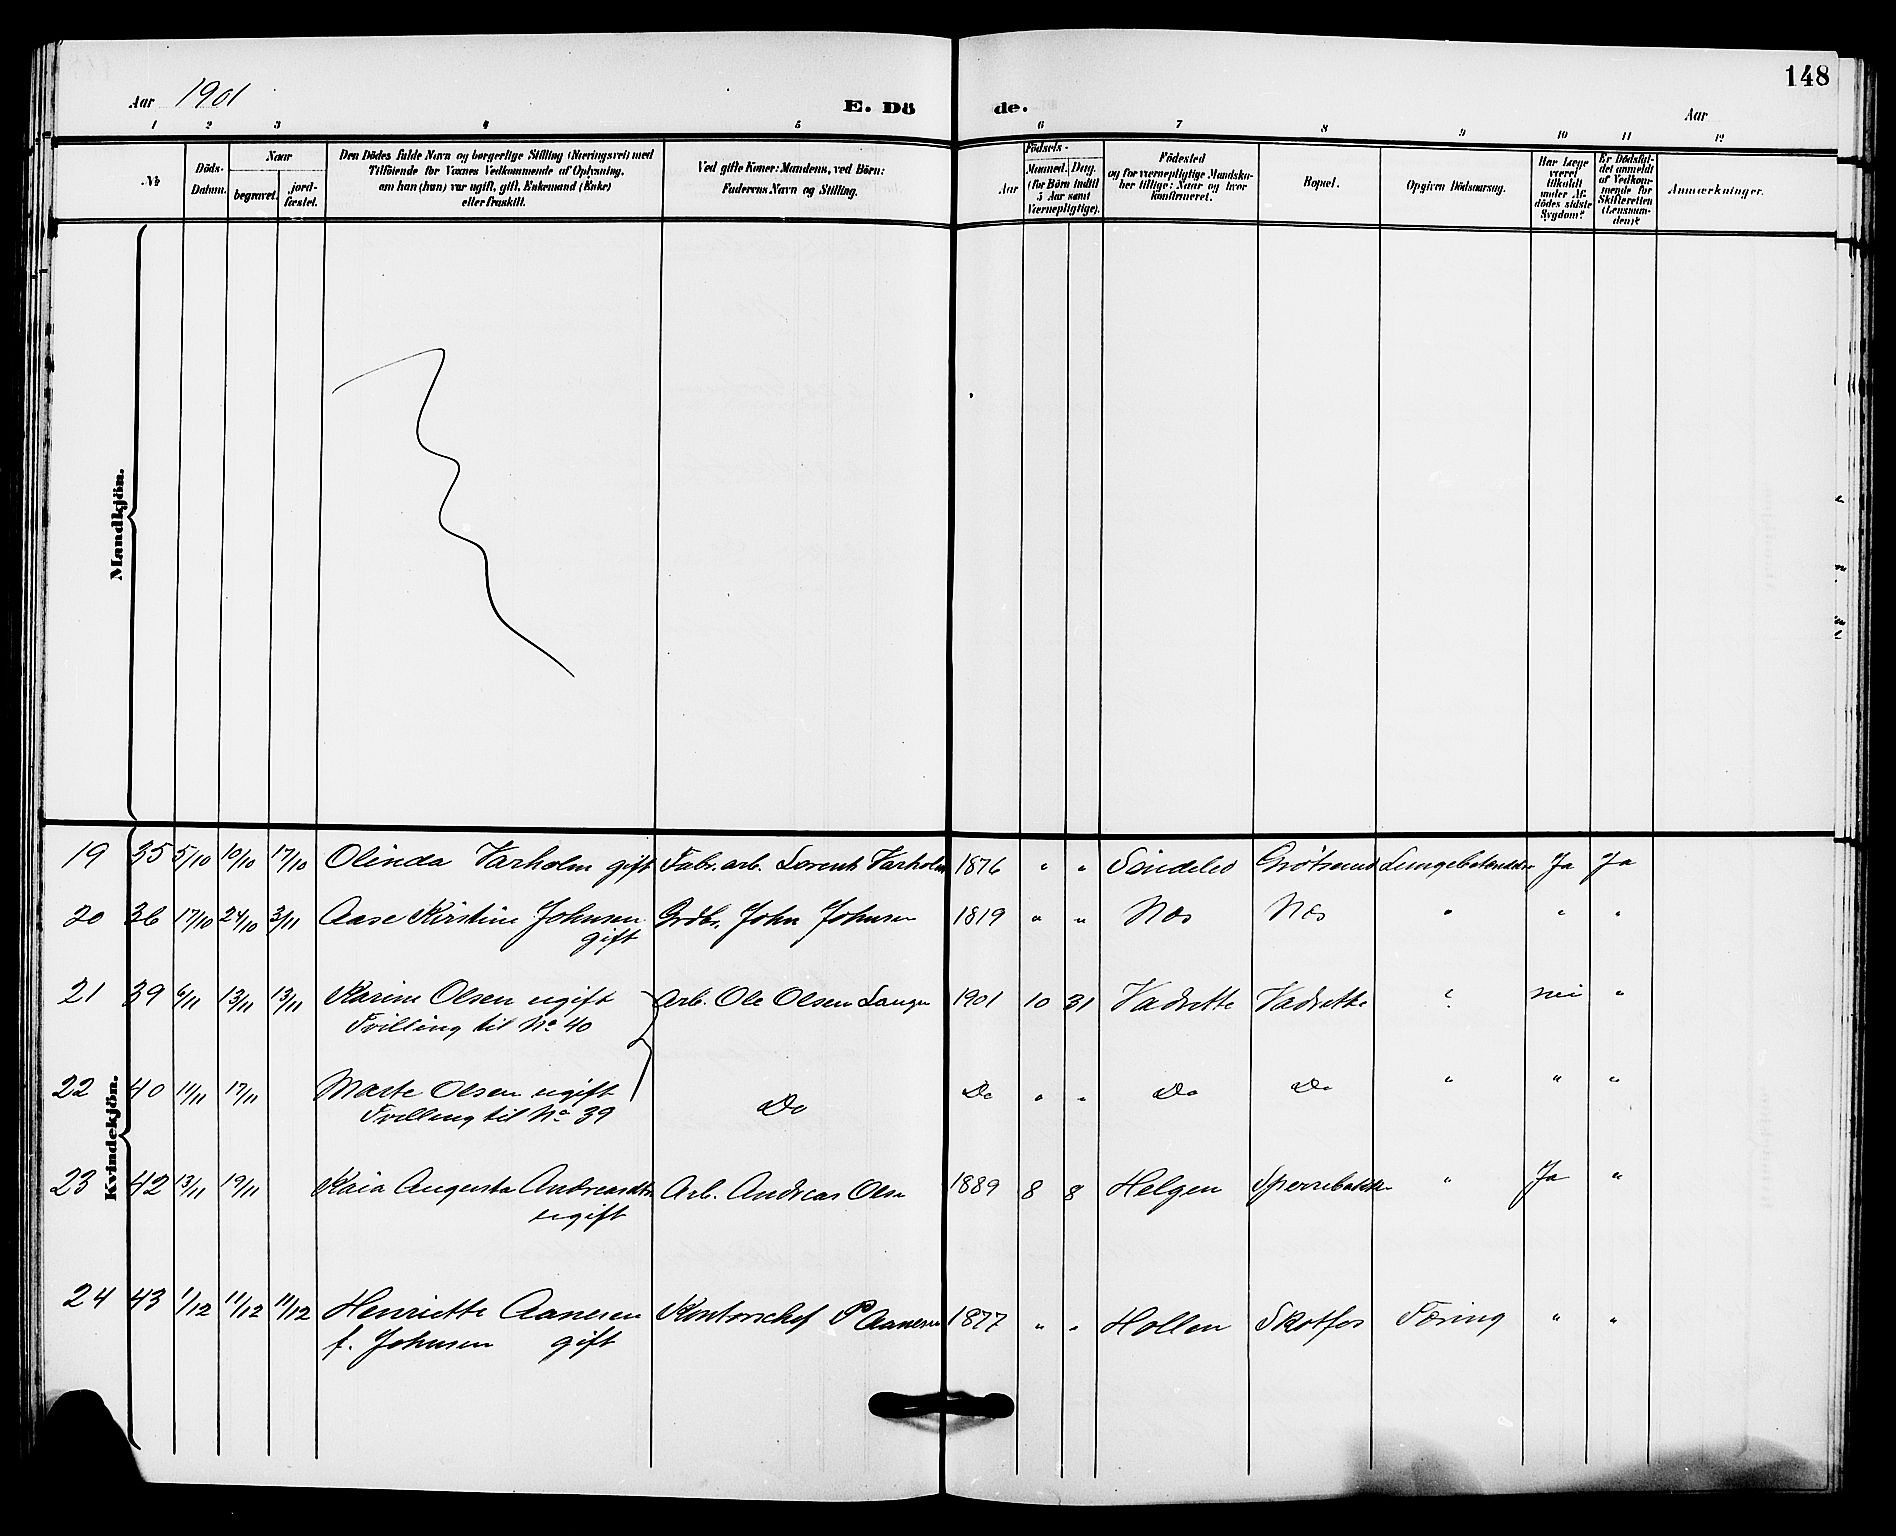 148
Aar 1901
E. Dö de.
Aar
1 2 3 4 5 6 7 8 9 10 11 12
No
Döds-
Datum.
Naar
begravet.
jord-
fæstet.
Den Dödes fulde Navn og borgerlige Stilling (Næringsvei) med
Tilföiende for Voxnes Vedkommende af Oplysning,
om han (hun) var ugift, gift, Enkemand (Enke)
eller fraskilt.
Ved gifte Koner: Mandens, ved Börn:
Faderens Navn og Stilling.
Födsels-
Aar
Maaned. Dag.
(for Börn indtil
5 Aar samt
Værnepligtige).
Födested
og for værnepligtige Mandska-
ber tillige: Naar og hvor
konfirmeret.
Bopæl.
Opgiven Dödsaarsag.
Har Læge
været
tilkaldt
under Af-
dödes sidste
Sygdom?
Er Dödsfal-
det anmeldt
af Vedkom-
mende for
Skifteretten
(Lensman-
den)?
Anmærkninger.
Mandkjön.
Kvindekjön.
19 35 5/10 10/10 17/10 Olinda Varholm gift Fabr. arb. Lorents Varholm 1876 " " Söndeled Grötsund Lungebetændelse Ja Ja
20 36 17/10 24/10 3/11 Aase Kirstine Johnsen Grdbr. John Johnsen 1819 " " Næs Næs " " "
gift
21 39 6/11 13/11 13/11 Karine Olsen ugift Arb. Ole Olsen 1901 10 31 Vadrette Vadrette " nei "
Tvilling til No 40
22 40 11/11 17/11 Marte Olsen ugift Do Do " " Do Do " " "
Tvilling til No 39
23 42 13/11 19/11 Kaia Augusta Andreasdtr Arb. Andreas Olsen 1889 8 8 Helgen Sperrebakken " Ja "
ugift
24 43 1/12 11/12 11/12 Henriette Aanesen Kontorchef P Aanesen 1877 " " Hollen Skotfos Tæring " "
f. Johnsen gift